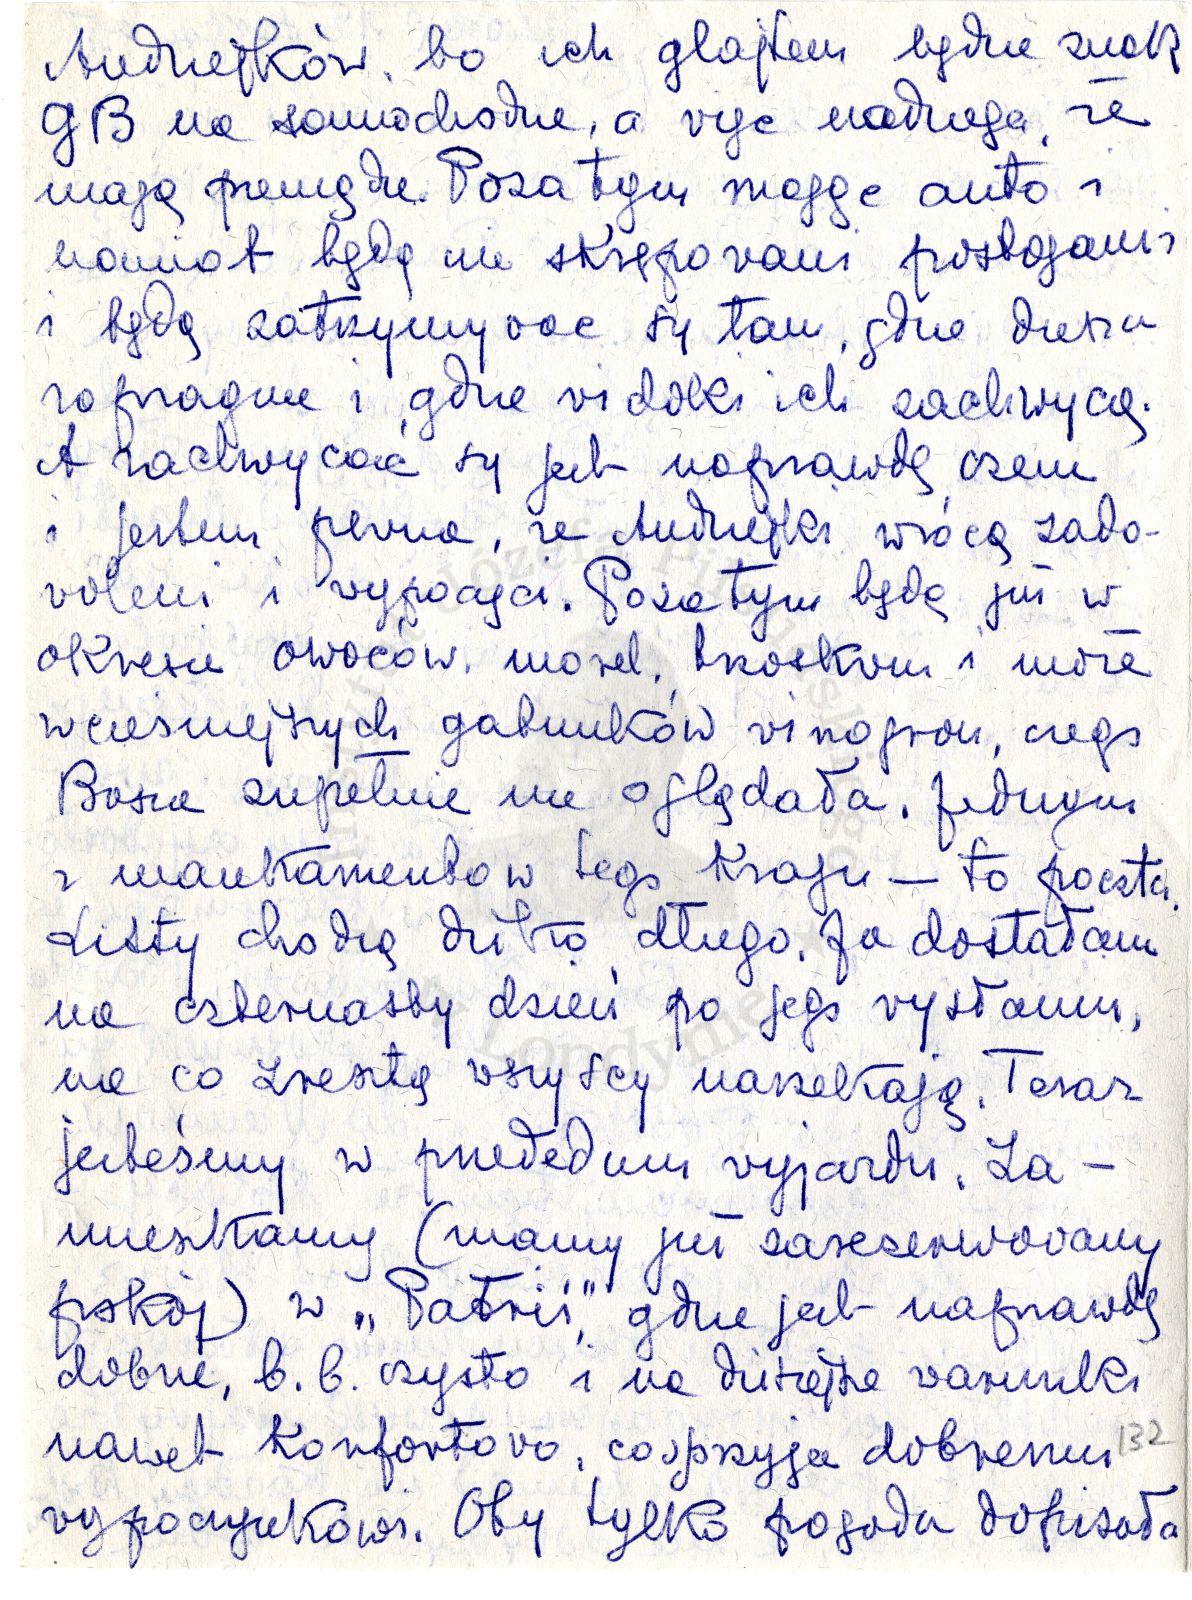 Andrzejków, bo ich glajtem będzie znak
GB na samochodzie, a więc nadzieja, że
mają pieniądze. Poza tym mając auto i
namiot będą nie skrępowani postojami
i będą zatrzymywać się tam, gdzie dusza
zapragnie i gdzie widoki ich zachwycą.
A zachwycać się jest naprawdę czem
i jestem pewna, że Andrzejki wrócą zado-
woleni i wypoczęci. Poza tym będą już w
okresie owoców, morel, brzoskwiń i może
wcześniejszych gatunków winogron, czego
Bosia zupełnie nie oglądała. Jednym
z mankamentów tego Kraju — to poczta.
Listy chodzą dziko długo. Ja dostałam
na czternasty dzień po jego wysłaniu,
na co zresztą wszyscy narzekają. Teraz
jesteśmy w przededniu wyjazdu. Za-
mieszkamy (mamy już zarezerwowany
pokój) w „Patrii", gdzie jest naprawdę
dobrze, b. b. czysto i na dzisiejsze warunki
nawet Komfortowo, co sprzyja dobremu
wypoczynkowi. Oby tylko pogoda dopisała
132
Instytut Józefa Piłsudskiego
w Londynie